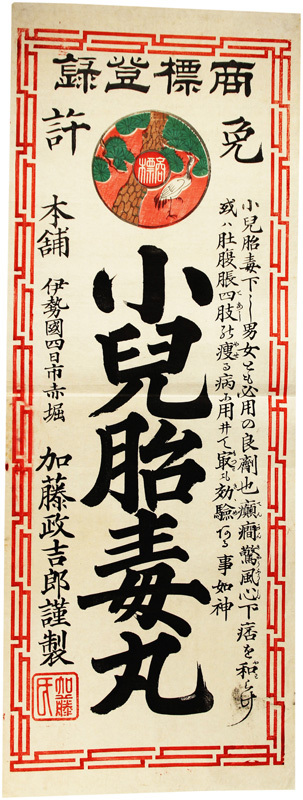 商標登録
免許
商標
小兒胎毒下し男女とも必用の良劑也癲癇驚風心下痞を和らけ
或ハ肚腹脹四肢の瘦る病に用ゐて最も効驗ある事如神
小兒胎毒丸
本舖 伊勢國四日市赤堀
加藤政吉郎謹製
加藤氏